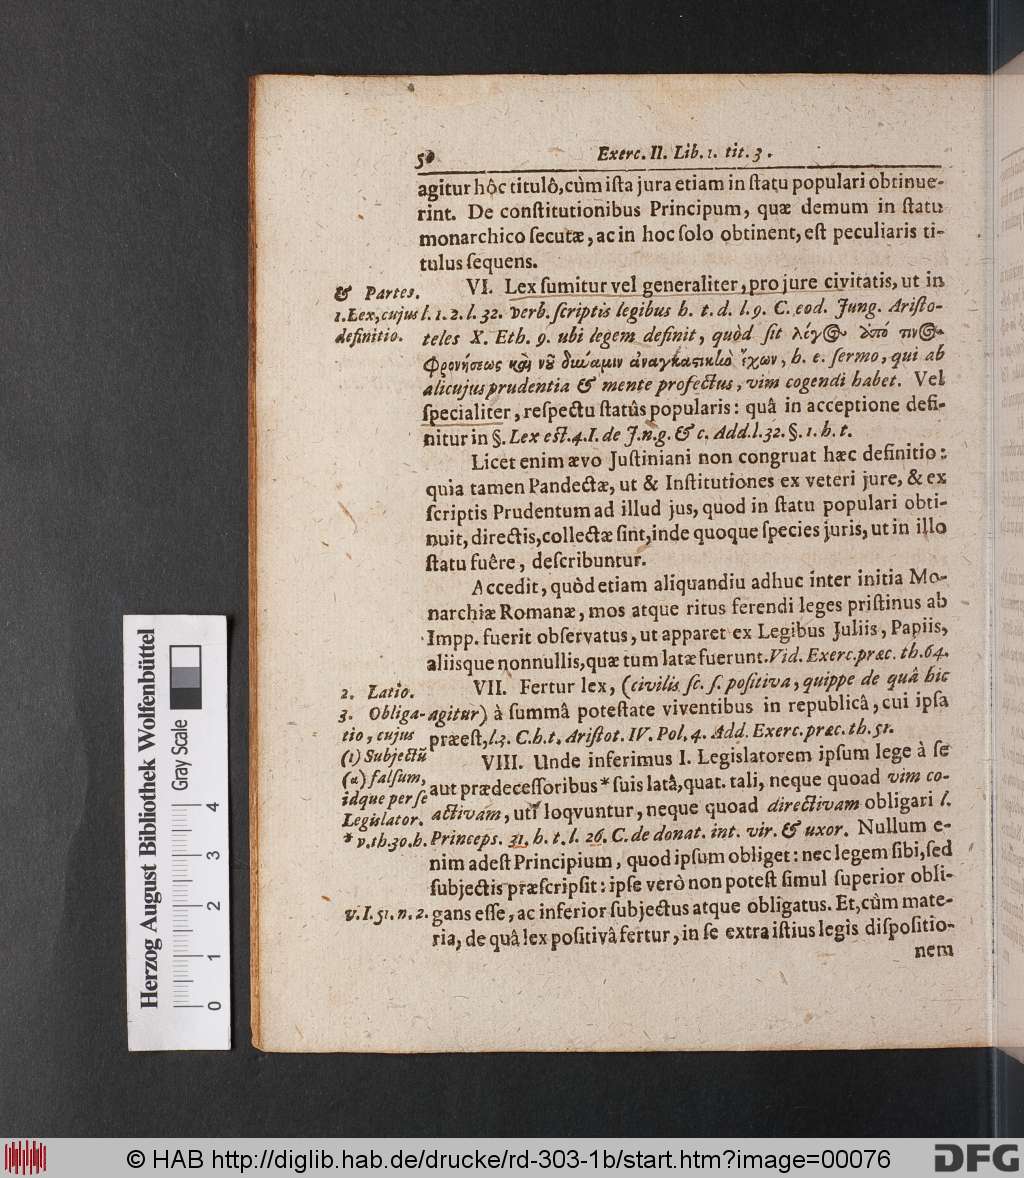 50 Exerc. II. Lib. 1. tit. 3.
agitur hôc titulô, cùm iſta jura etiam in ſtatu populari obtinue-
rint. De conſtitutionibus Principum, quæ demum in ſtatu
monarchico ſecutæ, ac in hoc ſolo obtinent, eſt peculiaris ti-
tulus ſequens.
& Partes.
1. Lex, cujus
definitio.
VI. Lex ſumitur vel generaliter, pro jure civitatis, ut in
l. 1. 2. l. 32. verb. ſcriptis legibus h. t. d. l. 9. C. eod. Jung. Ariſto-
teles X. Eth. 9. ubi legem definit, quòd ſit λόγος ἀπό τινος
φρονήσεως καὶ νοῦ δύναμιν ἀναγκαστικὴν ἔχων, h. e. ſermo, qui ab
alicujus prudentia & mente profectus, vim cogendi habet. Vel
ſpecialiter, reſpectu ſtatûs popularis: quâ in acceptione defi-
nitur in §. Lex eſt. 4. I. de J. n. g. & c. Add. l. 32. §. 1. h. t.
Licet enim ævo Juſtiniani non congruat hæc definitio:
quia tamen Pandectæ, ut & Inſtitutiones ex veteri jure, & ex
ſcriptis Prudentum ad illud jus, quod in ſtatu populari obti-
nuit, directis, collectæ ſint, inde quoque ſpecies juris, ut in illo
ſtatu fuêre, deſcribuntur.
Accedit, quòd etiam aliquandiu adhuc inter initia Mo-
narchiæ Romanæ, mos atque ritus ferendi leges priſtinus ab
Impp. fuerit obſervatus, ut apparet ex Legibus Juliis, Papiis,
aliisque nonnullis, quæ tum latæ fuerunt. Vid. Exerc. præc. th. 64.
2. Latio.
3. Obliga-
tio, cujus
(1) Subjectũ
(α) falſum,
idque per ſe
Legislator.
* v. th. 30. h.
VII. Fertur lex, (civilis ſc. ſ. poſitiva, quippe de quâ hic
agitur) à ſummâ poteſtate viventibus in republicâ, cui ipſa
præeſt, l. 3. C. h. t. Ariſtot. IV. Pol. 4. Add. Exerc. præc. th. 51.
VIII. Unde inferimus I. Legislatorem ipſum lege à ſe
aut prædeceſſoribus * ſuis latâ, quat. tali, neque quoad vim co-
activam, uti loqvuntur, neque quoad directivam obligari l.
Princeps. 31. h. t. l. 26. C. de donat. int. vir. & uxor. Nullum e-
nim adeſt Principium, quod ipſum obliget: nec legem ſibi, ſed
ſubjectis præſcripſit: ipſe verò non poteſt ſimul ſuperior obli-
v. I. 51. n. 2.
gans eſſe, ac inferior ſubjectus atque obligatus. Et, cùm mate-
ria, de quâ lex poſitivâ fertur, in ſe extra iſtius legis diſpoſitio-
nem
Herzog August Bibliothek Wolfenbüttel
Gray Scale
0 1 2 3 4
© HAB http://diglib.hab.de/drucke/rd-303-1b/start.htm?image=00076
DFG